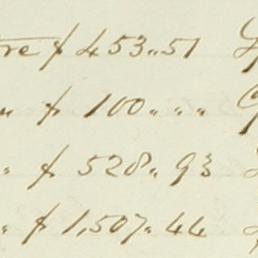 tre $ 453.,51
$ 100.,,,
" $ 528.,93
" $ 1,507.,44